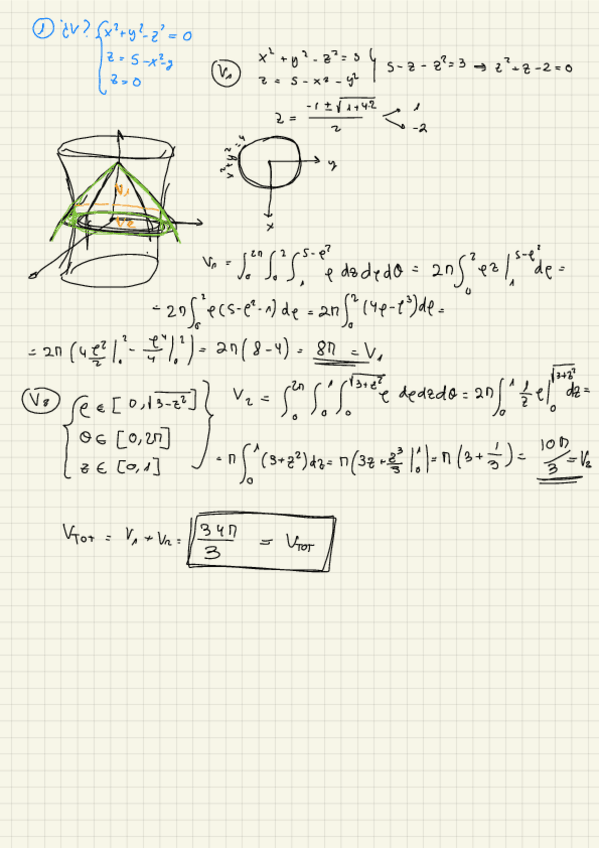 1) ¿V? { x² + y² - z² = 0
z = 5 - x² - y
z = 0
V₁ x² + y² - z² = 3
z = 5 - x² - y² } 5 - z - z² = 3 → z² + z - 2 = 0
z = (-1 ± √(1+4·2))/2 < 1
-2
x² + y² = 4
y
x
V₁
V₂
V₁ = ∫₀^2π ∫₀^2 ∫₁^(5-ρ²) ρ dz dρ dθ = 2π ∫₀^2 ρz |₁^(5-ρ²) dρ =
= 2π ∫₀^2 ρ(5 - ρ² - 1) dρ = 2π ∫₀^2 (4ρ - ρ³) dρ =
= 2π (4 ρ²/2 |₀^2 - ρ⁴/4 |₀^2) = 2π (8 - 4) = 8π = V₁
V₂ { ρ ∈ [0, √3-z²]
θ ∈ [0, 2π]
z ∈ [0, 1] }
V₂ = ∫₀^2π ∫₀^1 ∫₀^√(3+z²) ρ dρ dz dθ = 2π ∫₀^1 1/2 ρ |₀^√(3+z²) dz =
= π ∫₀^1 (3 + z²) dz = π (3z + z³/3 |₀^1) = π (3 + 1/3) = 10π/3 = V₂
V_TOT = V₁ + V₂ = 34π/3 = V_TOT